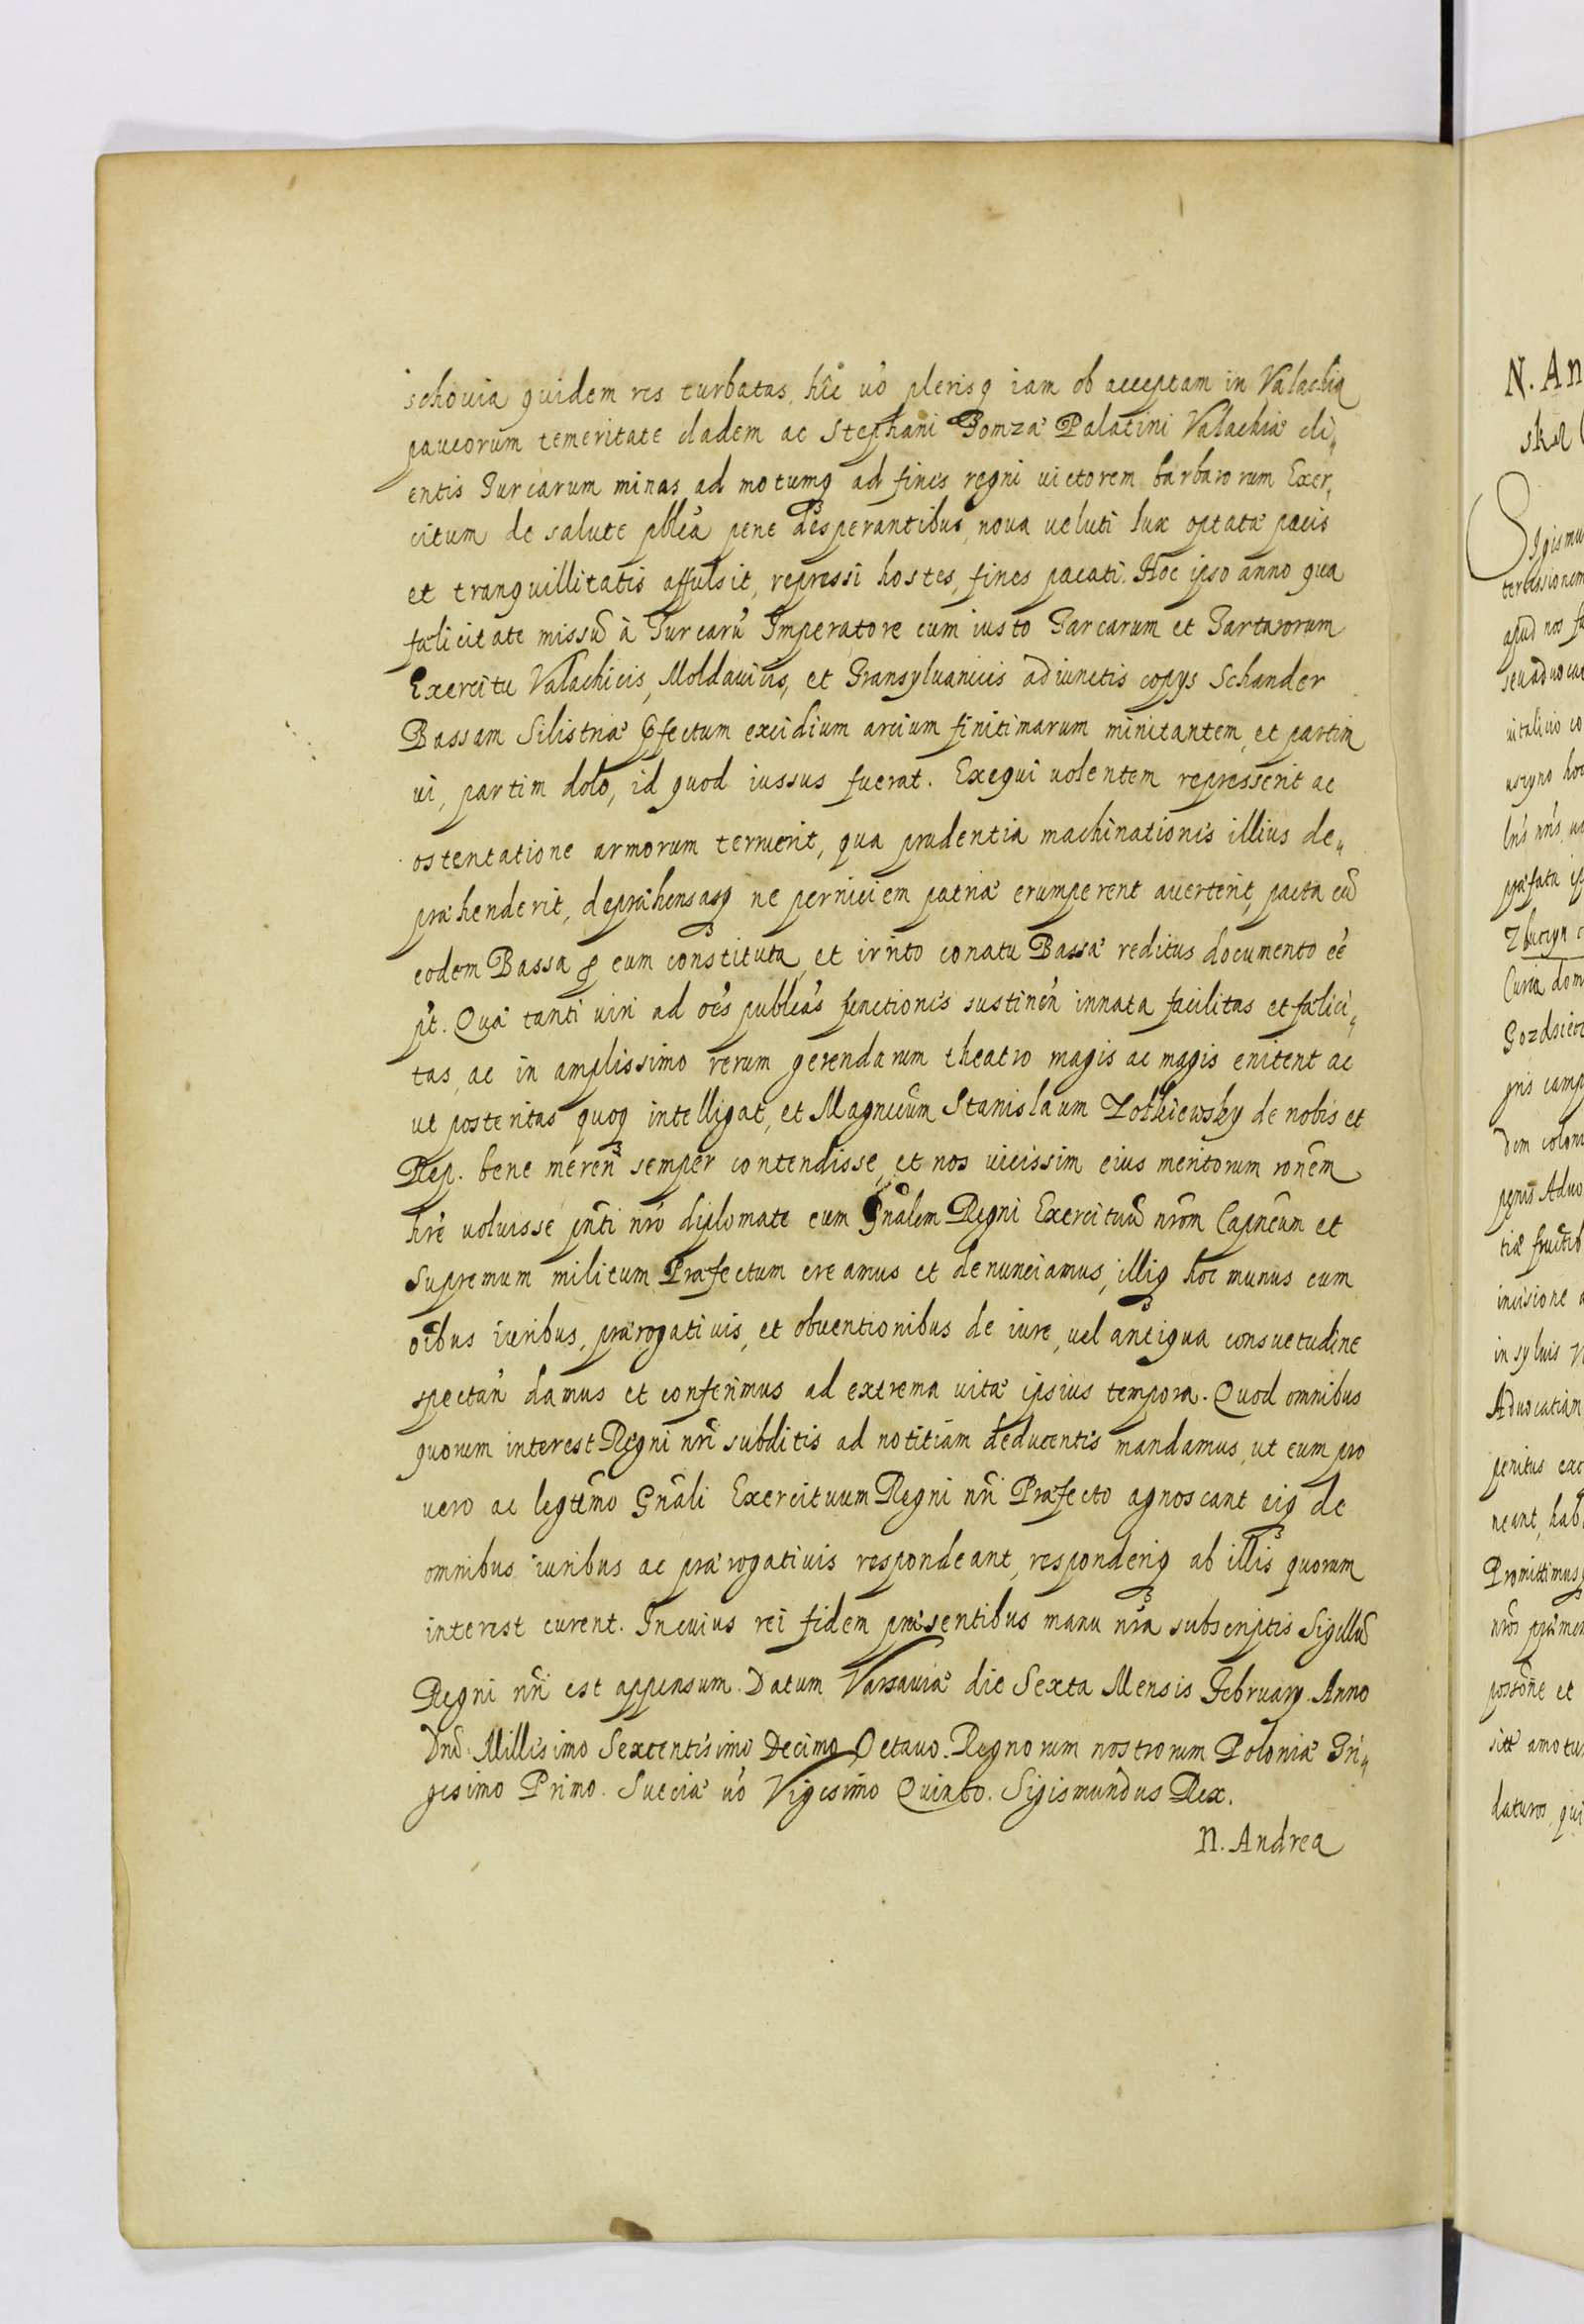 schouia quidem res turbatas, hîc uó plerisq iam ob acceptam in Valachia
paucorum temeritate cladem ac Stephani Tomzæ Palatini Valachiæ cli„
entis Turcarum minas ad motumq ad fines regni uictorem barbarorum Exer„
citum de salute pblca pene desperantibus, noua ueluti lux optatæ pacis
et tranquillitatis affulsit, repressi hostes, fines pacati. Hoc ipso anno qua
fælicitate missu͂ à Turcaru͂ Imperatore cum iusto Turcarum et Tartarorum
Exercitu Valachicis, Moldauicis, et Transyluanicis adiunctis copys Schander
Bassam Silistriæ Pfectum excidium arcium finitimarum minitantem, et partim
ui, partim dolo, id quod iussus fuerat. Exequi uolentem represserit ac
ostentatione armorum terruerit, qua prudentia machinationes illius de„
præhenderit, depræhensasq ne perniciem patriæ erumperent auerterit, pacta cu͂
eodem Bassa p eum constituta, et irrito conatu Bassæ reditus documento eé
pt. Quæ tanti uiri ad oes publcas functiones sustinen innata facilitas et fælici„
tas, ac in amplissimo rerum gerendarum theatro magis ac magis enitent ac
ut posteritas quoq intelligat, et Magncum Stanislaum Zolkiewsky de nobis et
Rep. bene meren semper contendisse, et nos uicissim eius meritorum ronem
hre uoluisse pnti nro diplomate eum Gnalem Regni Exercituu͂ nrom Capneum et
Supremum militum Præfectum creamus et denunciamus, illiq hoc munus cum
oibus iuribus, prærogatiuis, et obuentionibus de iure, uel antiqua consuetudine
spectan damus et conferimus ad extrema uitæ ipsius tempora. Quod omnibus
quorum interest Regni nri subditis ad notitiam deducentes mandamus, ut eum pro
uero ac legtimo Gnali Exercituum Regni nri Præfecto agnoscant eiq de
omnibus iuribus ac prærogatiuis respondeant, responderiq ab illis quorum
interest curent. In cuius rei fidem præsentibus manu nra subscriptis Sigillu͂
Regni nri est appensum. Datum Varsauiæ die Sexta Mensis February. Anno
Dni. Millesimo Sexcentesimo Decimo Octauo. Regnorum nostrorum Poloniæ Tri„
gesimo Primo. Sueciæ uó Vigesimo Quinto. Sigismundus Rex.
N. Andrea
N. An
skæ
Sigismu
apud nos fa
uitalitio co
præfata
Curia dom
Aduocatiam
penitus exc
neant, hab
Promittimusq
postone et
daturos, qui